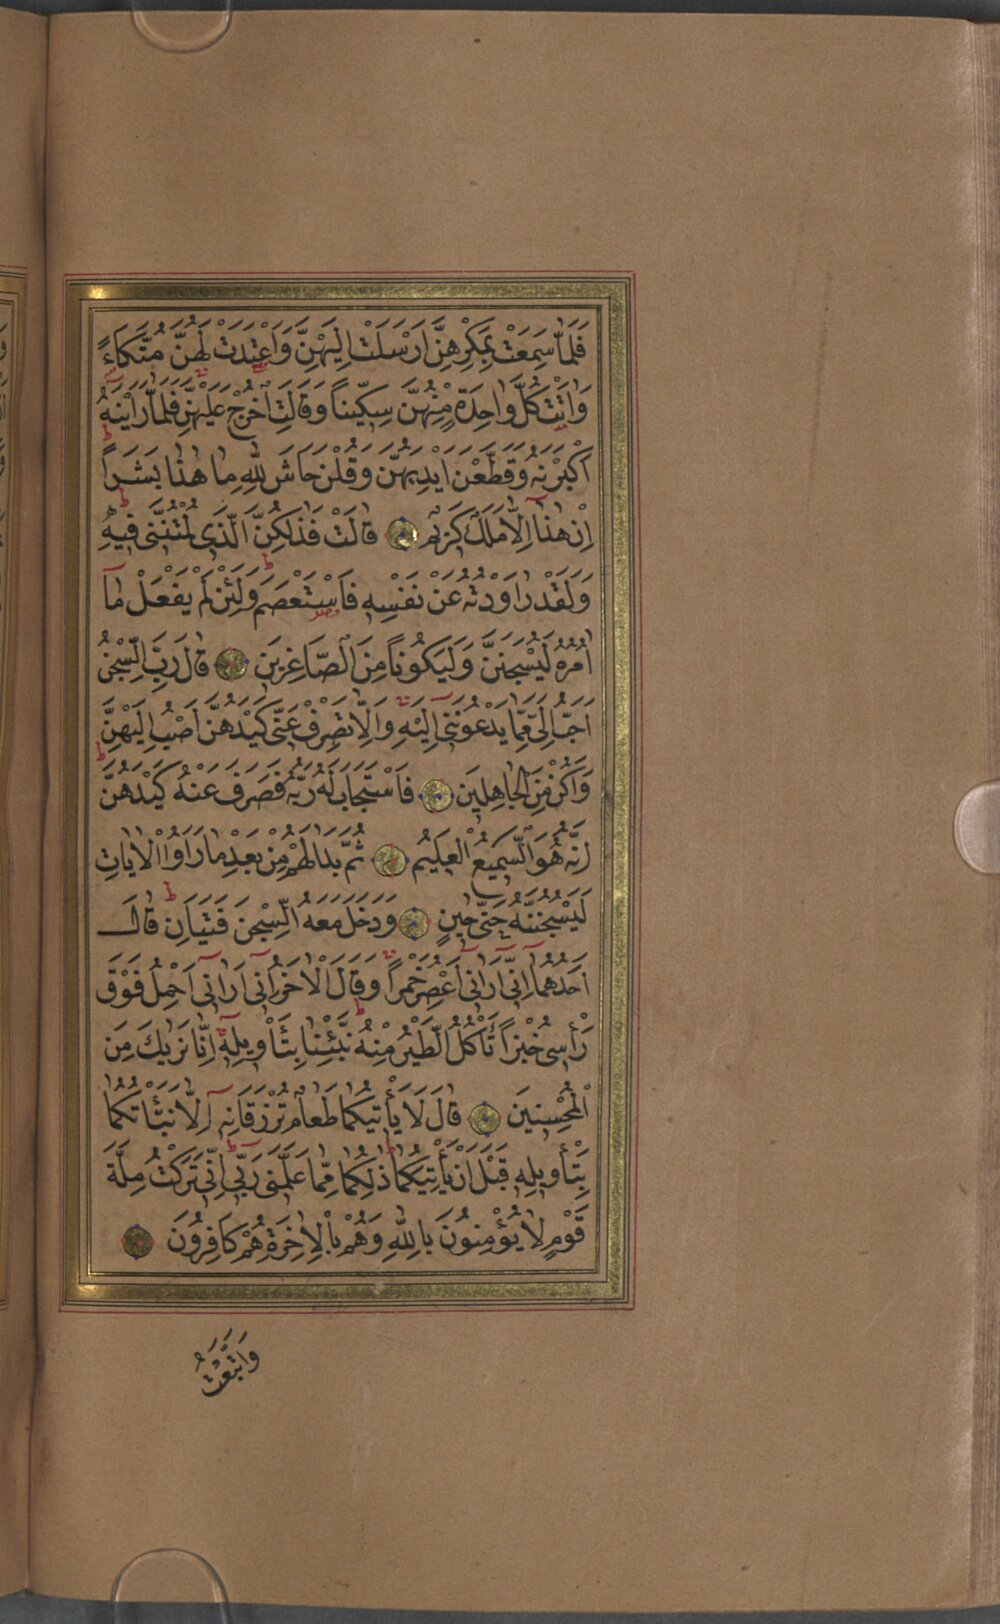 فَلَمَّا سَمِعَتْ بِمَكْرِهِنَّ اَرْسَلَتْ اِلَيْهِنَّ وَاَعْتَدَتْ لَهُنَّ مُتَّكَاءً
وَاٰتَتْ كُلَّ وَاحِدَةٍ مِنْهُنَّ سِكّٖيناً وَقَالَتِ اخْرُجْ عَلَيْهِنَّ فَلَمَّا رَاَيْنَهُ
اَكْبَرْنَهُ وَقَطَّعْنَ اَيْدِيَهُنَّ وَقُلْنَ حَاشَ لِلّٰهِ مَا هٰذَا بَشَراً
اِنْ هٰذَا اِلَّا مَلَكٌ كَرٖيمٌ قَالَتْ فَذٰلِكُنَّ الَّذٖى لُمْتُنَّنٖى فٖيهِ
وَلَقَدْ رَاوَدْتُهُ عَنْ نَفْسِهٖ فَاسْتَعْصَمَ وَلَئِنْ لَمْ يَفْعَلْ مَا
اٰمُرُهُ لَيُسْجَنَنَّ وَلَيَكُوناً مِنَ الصَّاغِرٖينَ قَالَ رَبِّ السِّجْنُ
اَحَبُّ اِلَىَّ مِمَّا يَدْعُونَنٖى اِلَيْهِ وَاِلَّا تَصْرِفْ عَنّٖى كَيْدَهُنَّ اَصْبُ اِلَيْهِنَّ
وَاَكُنْ مِنَ الْجَاهِلٖينَ فَاسْتَجَابَ لَهُ رَبُّهُ فَصَرَفَ عَنْهُ كَيْدَهُنَّ
اِنَّهُ هُوَ السَّمٖيعُ الْعَلٖيمُ ثُمَّ بَدَا لَهُمْ مِنْ بَعْدِ مَا رَاَوُا الْاٰيَاتِ
لَيَسْجُنُنَّهُ حَتّٰى حٖينٍ وَدَخَلَ مَعَهُ السِّجْنَ فَتَيَانِ قَالَ
اَحَدُهُمَا اِنّٖى اَرٰانٖى اَعْصِرُ خَمْراً وَقَالَ الْاٰخَرُ اِنّٖى اَرٰانٖى اَحْمِلُ فَوْقَ
رَأْسٖى خُبْزاً تَأْكُلُ الطَّيْرُ مِنْهُ نَبِّئْنَا بِتَأْوٖيلِهٖ اِنَّا نَرٰيكَ مِنَ
الْمُحْسِنٖينَ قَالَ لَا يَأْتٖيكُمَا طَعَامٌ تُرْزَقَانِهٖ اِلَّا نَبَّأْتُكُمَا
بِتَأْوٖيلِهٖ قَبْلَ اَنْ يَأْتِيَكُمَا ذٰلِكُمَا مِمَّا عَلَّمَنٖى رَبّٖى اِنّٖى تَرَكْتُ مِلَّةَ
قَوْمٍ لَا يُؤْمِنُونَ بِاللّٰهِ وَهُمْ بِالْاٰخِرَةِ هُمْ كَافِرُونَ
وَاتَّبَعْتُ